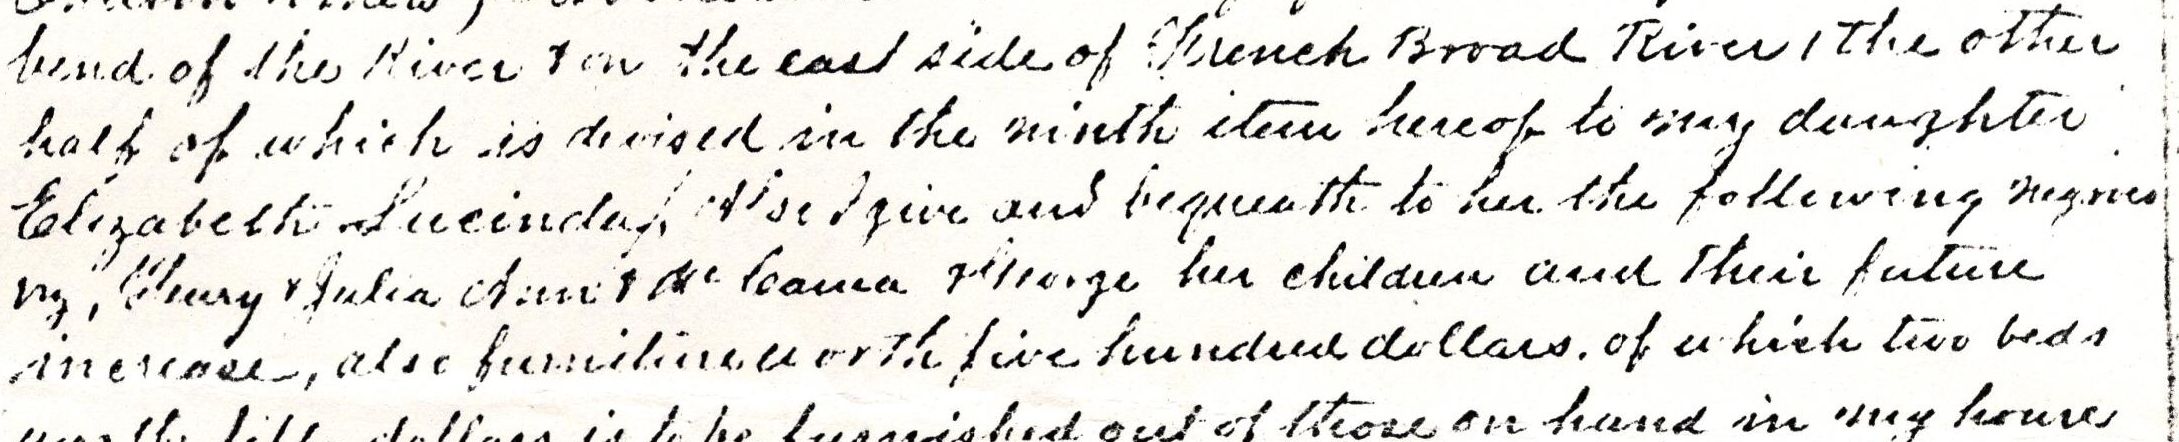 bend of the River & on the east side of French Broad River, the other
half of which is devised in the ninth item hereof to my daughter
Elizabeth Lucinda, Also I give and bequeath to her the following negroes
viz, Henry & Julia Ann & & George her children and their future
increase, also furniture worth five hundred dollars, of which two beds
worth fifty dollars is to be furnished out of those on hand in my house